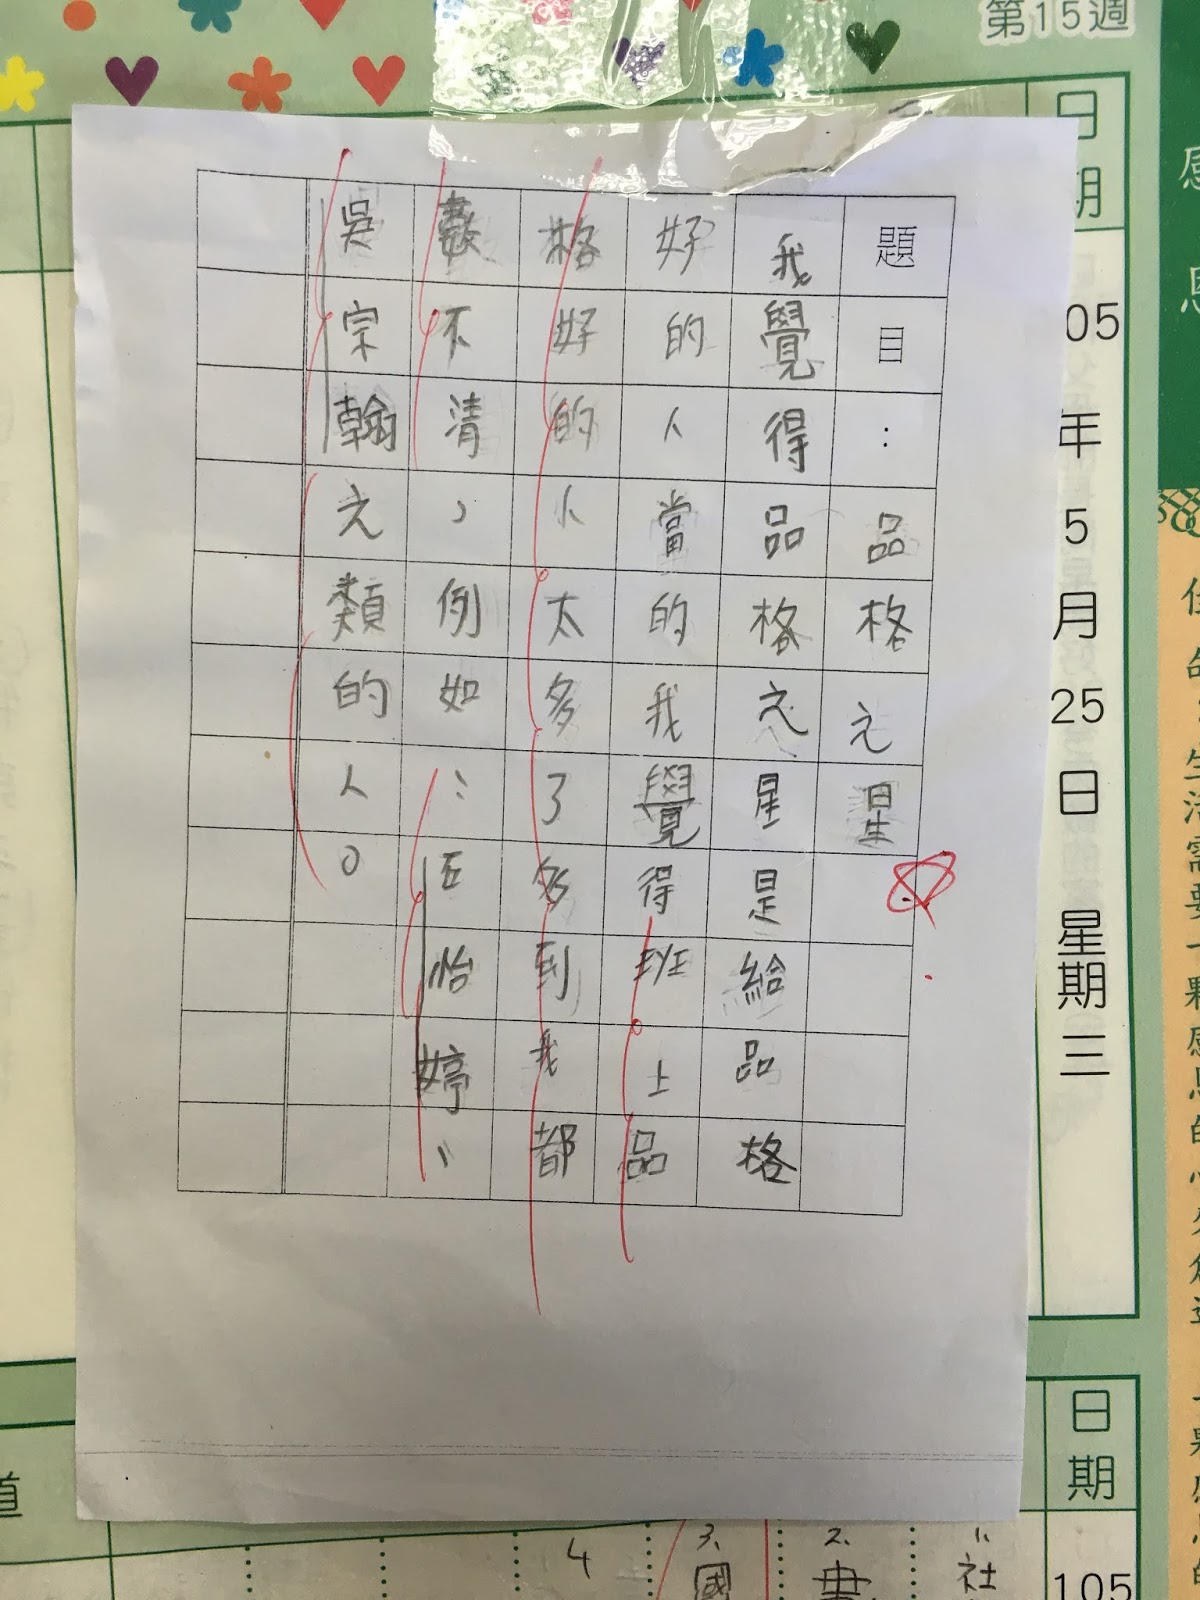 第15週
日期
105年5月25日星期三
題目：品格之星
我覺得品格之星是給品格
好的人當的我覺得班上品
格好的人太多了多到我都
數不清，例如：伍怡婷、
吳宗翰之類的人。
日期
105
1.社
2.書
3.國
4